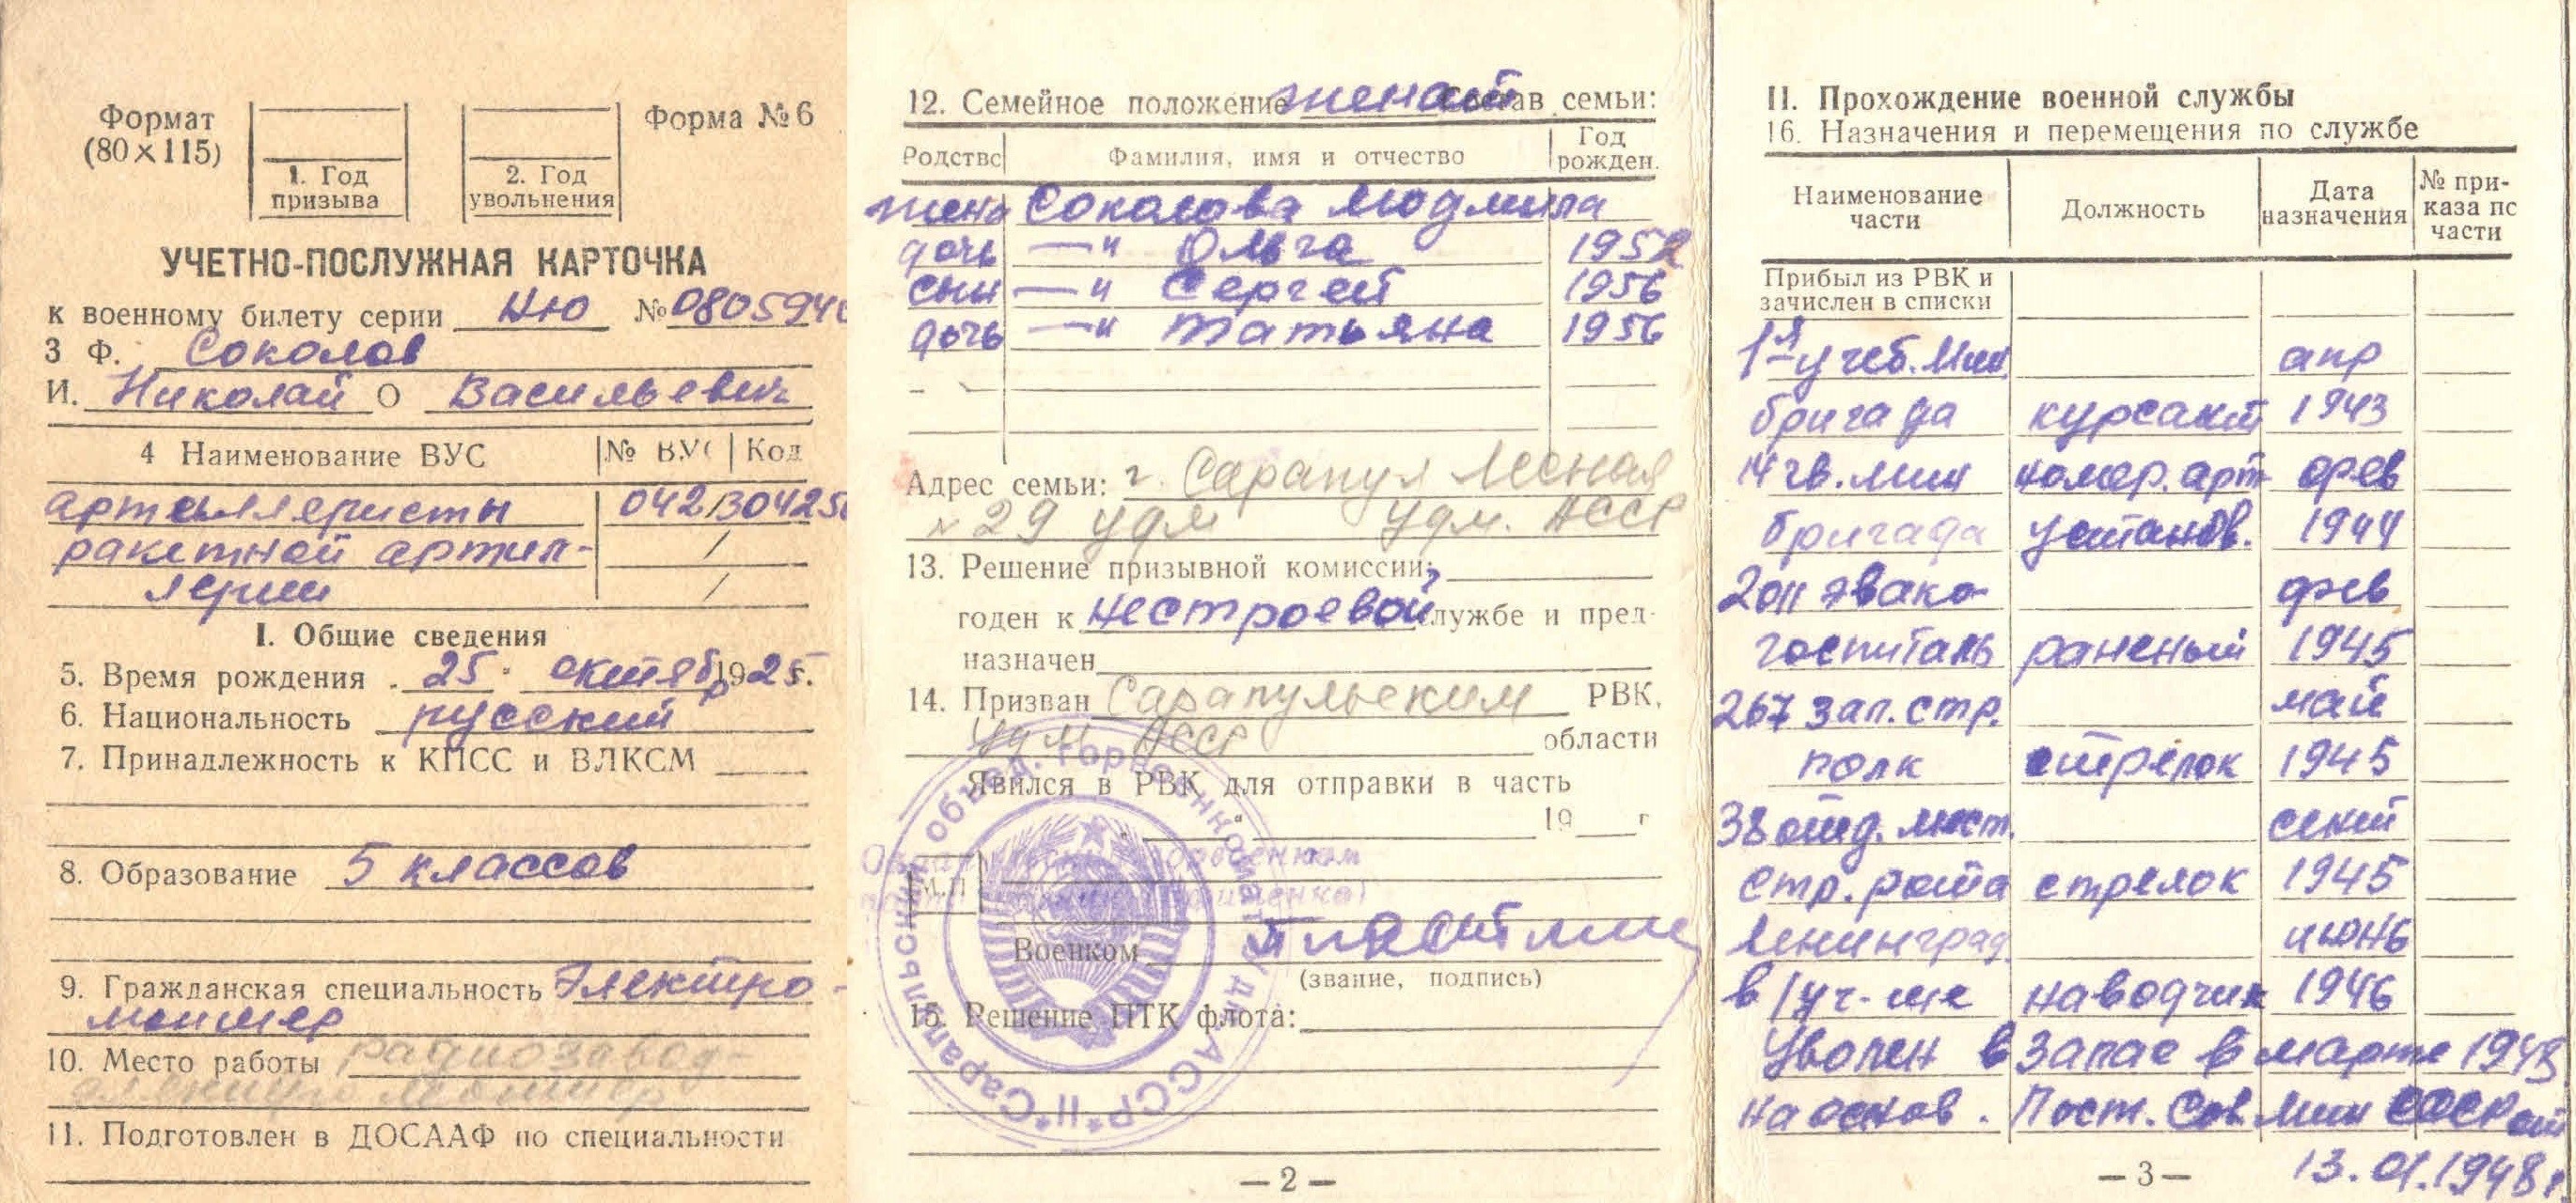 Формат
(80×115)
1. Год
призыва
2. Год
увольнения
Форма №6
УЧЕТНО-ПОСЛУЖНАЯ КАРТОЧКА
к военному билету серии НЮ № 080594
3 Ф. Соколов
И. Николай О Васильевич
4 Наименование ВУС № ВУС Код
артиллеристы 042130425
ракетной артил-
лерии
I. Общие сведения
5. Время рождения 25 октябр 1925 г.
6. Национальность русский
7. Принадлежность к КПСС и ВЛКСМ
8. Образование 5 классов
9. Гражданская специальность Электро-
монтер
10. Место работы радиозавод-
электромонтер
11. Подготовлен в ДОСААФ по специальности
12. Семейное положение женат Состав семьи:
Родство Фамилия, имя и отчество Год рожден.
жена Соколова Людмила
дочь —"— Ольга 1952
сын —"— Сергей 1956
дочь —"— Татьяна 1956
Адрес семьи: г. Сарапул Лесная
№ 29 Удм Удм. АССР
13. Решение призывной комиссии:
годен к нестроевой службе и пред-
назначен
14. Призван Сарапульским РВК,
Удм АССР области
Явился в РВК для отправки в часть
" " 19 г
М.П
Военком
(звание, подпись)
15. Решение ПТК флота:
— 2 —
II. Прохождение военной службы
16. Назначения и перемещения по службе
Наименование части Должность Дата назначения № приказа по части
Прибыл из РВК и
зачислен в списки
1я учеб. Мин. апр
бригада курсант 1943
14 гв. мин номер. арт фев
бригада установ. 1944
2011 эвако- фев
госпиталь раненый 1945
267 зап. стр. май
полк стрелок 1945
38 отд. мест. сент
стр. рота стрелок 1945
Ленинград. июнь
в/уч-ще наводчик 1946
Уволен в запас в марте 1948
на основ. Пост. Сов. Мин СССР от
— 3 — 13.01.1948 г.